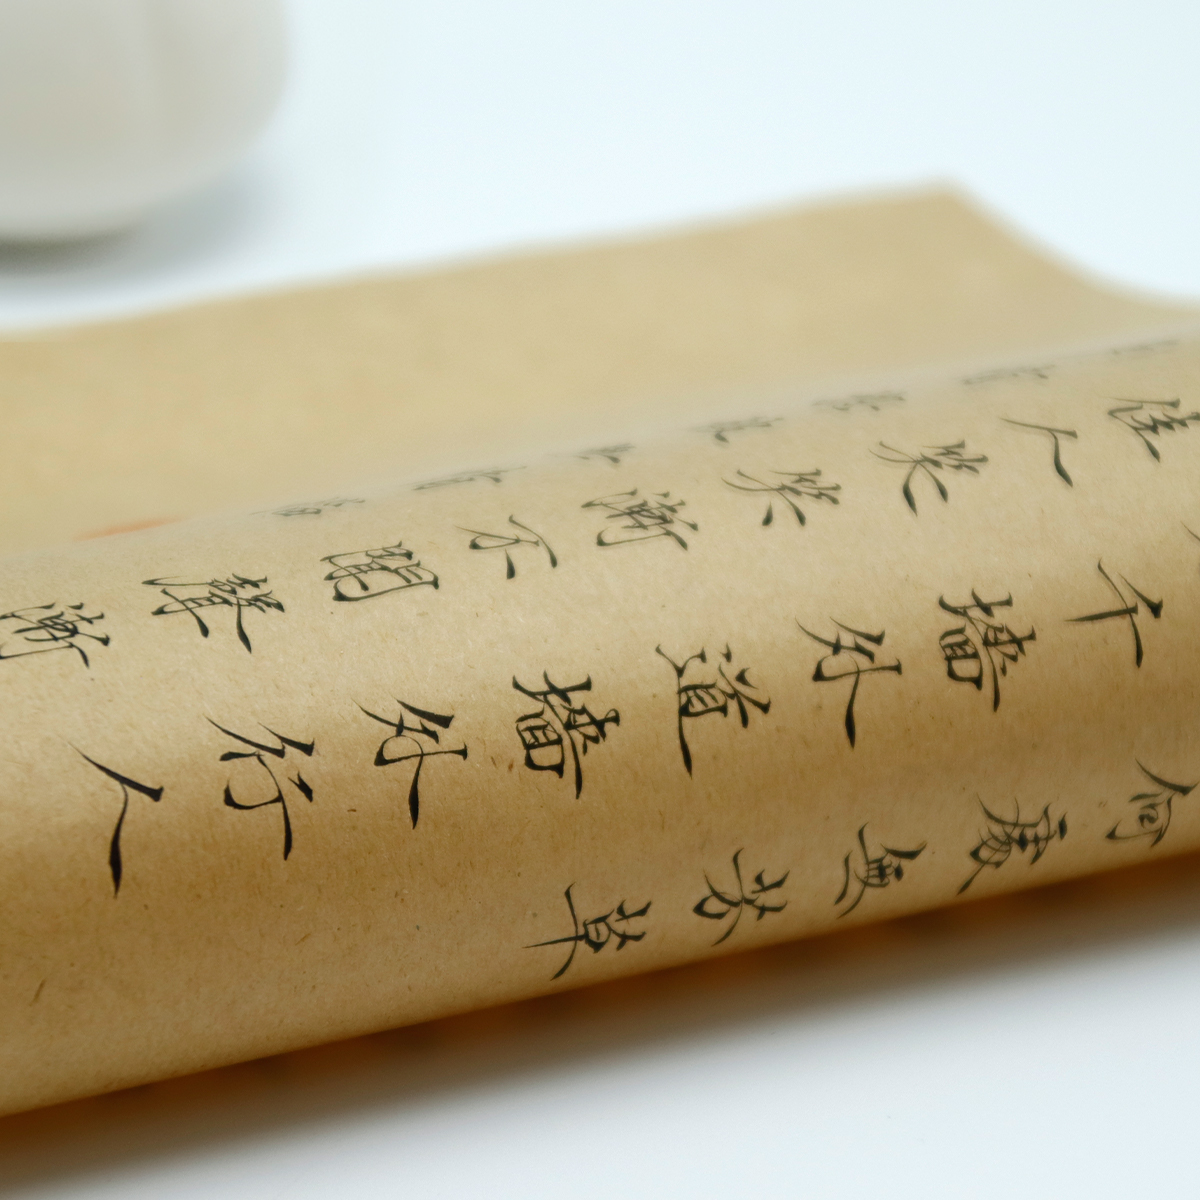 何處無芳草
千墙外道墙外行人
佳人笑笑漸不聞聲漸